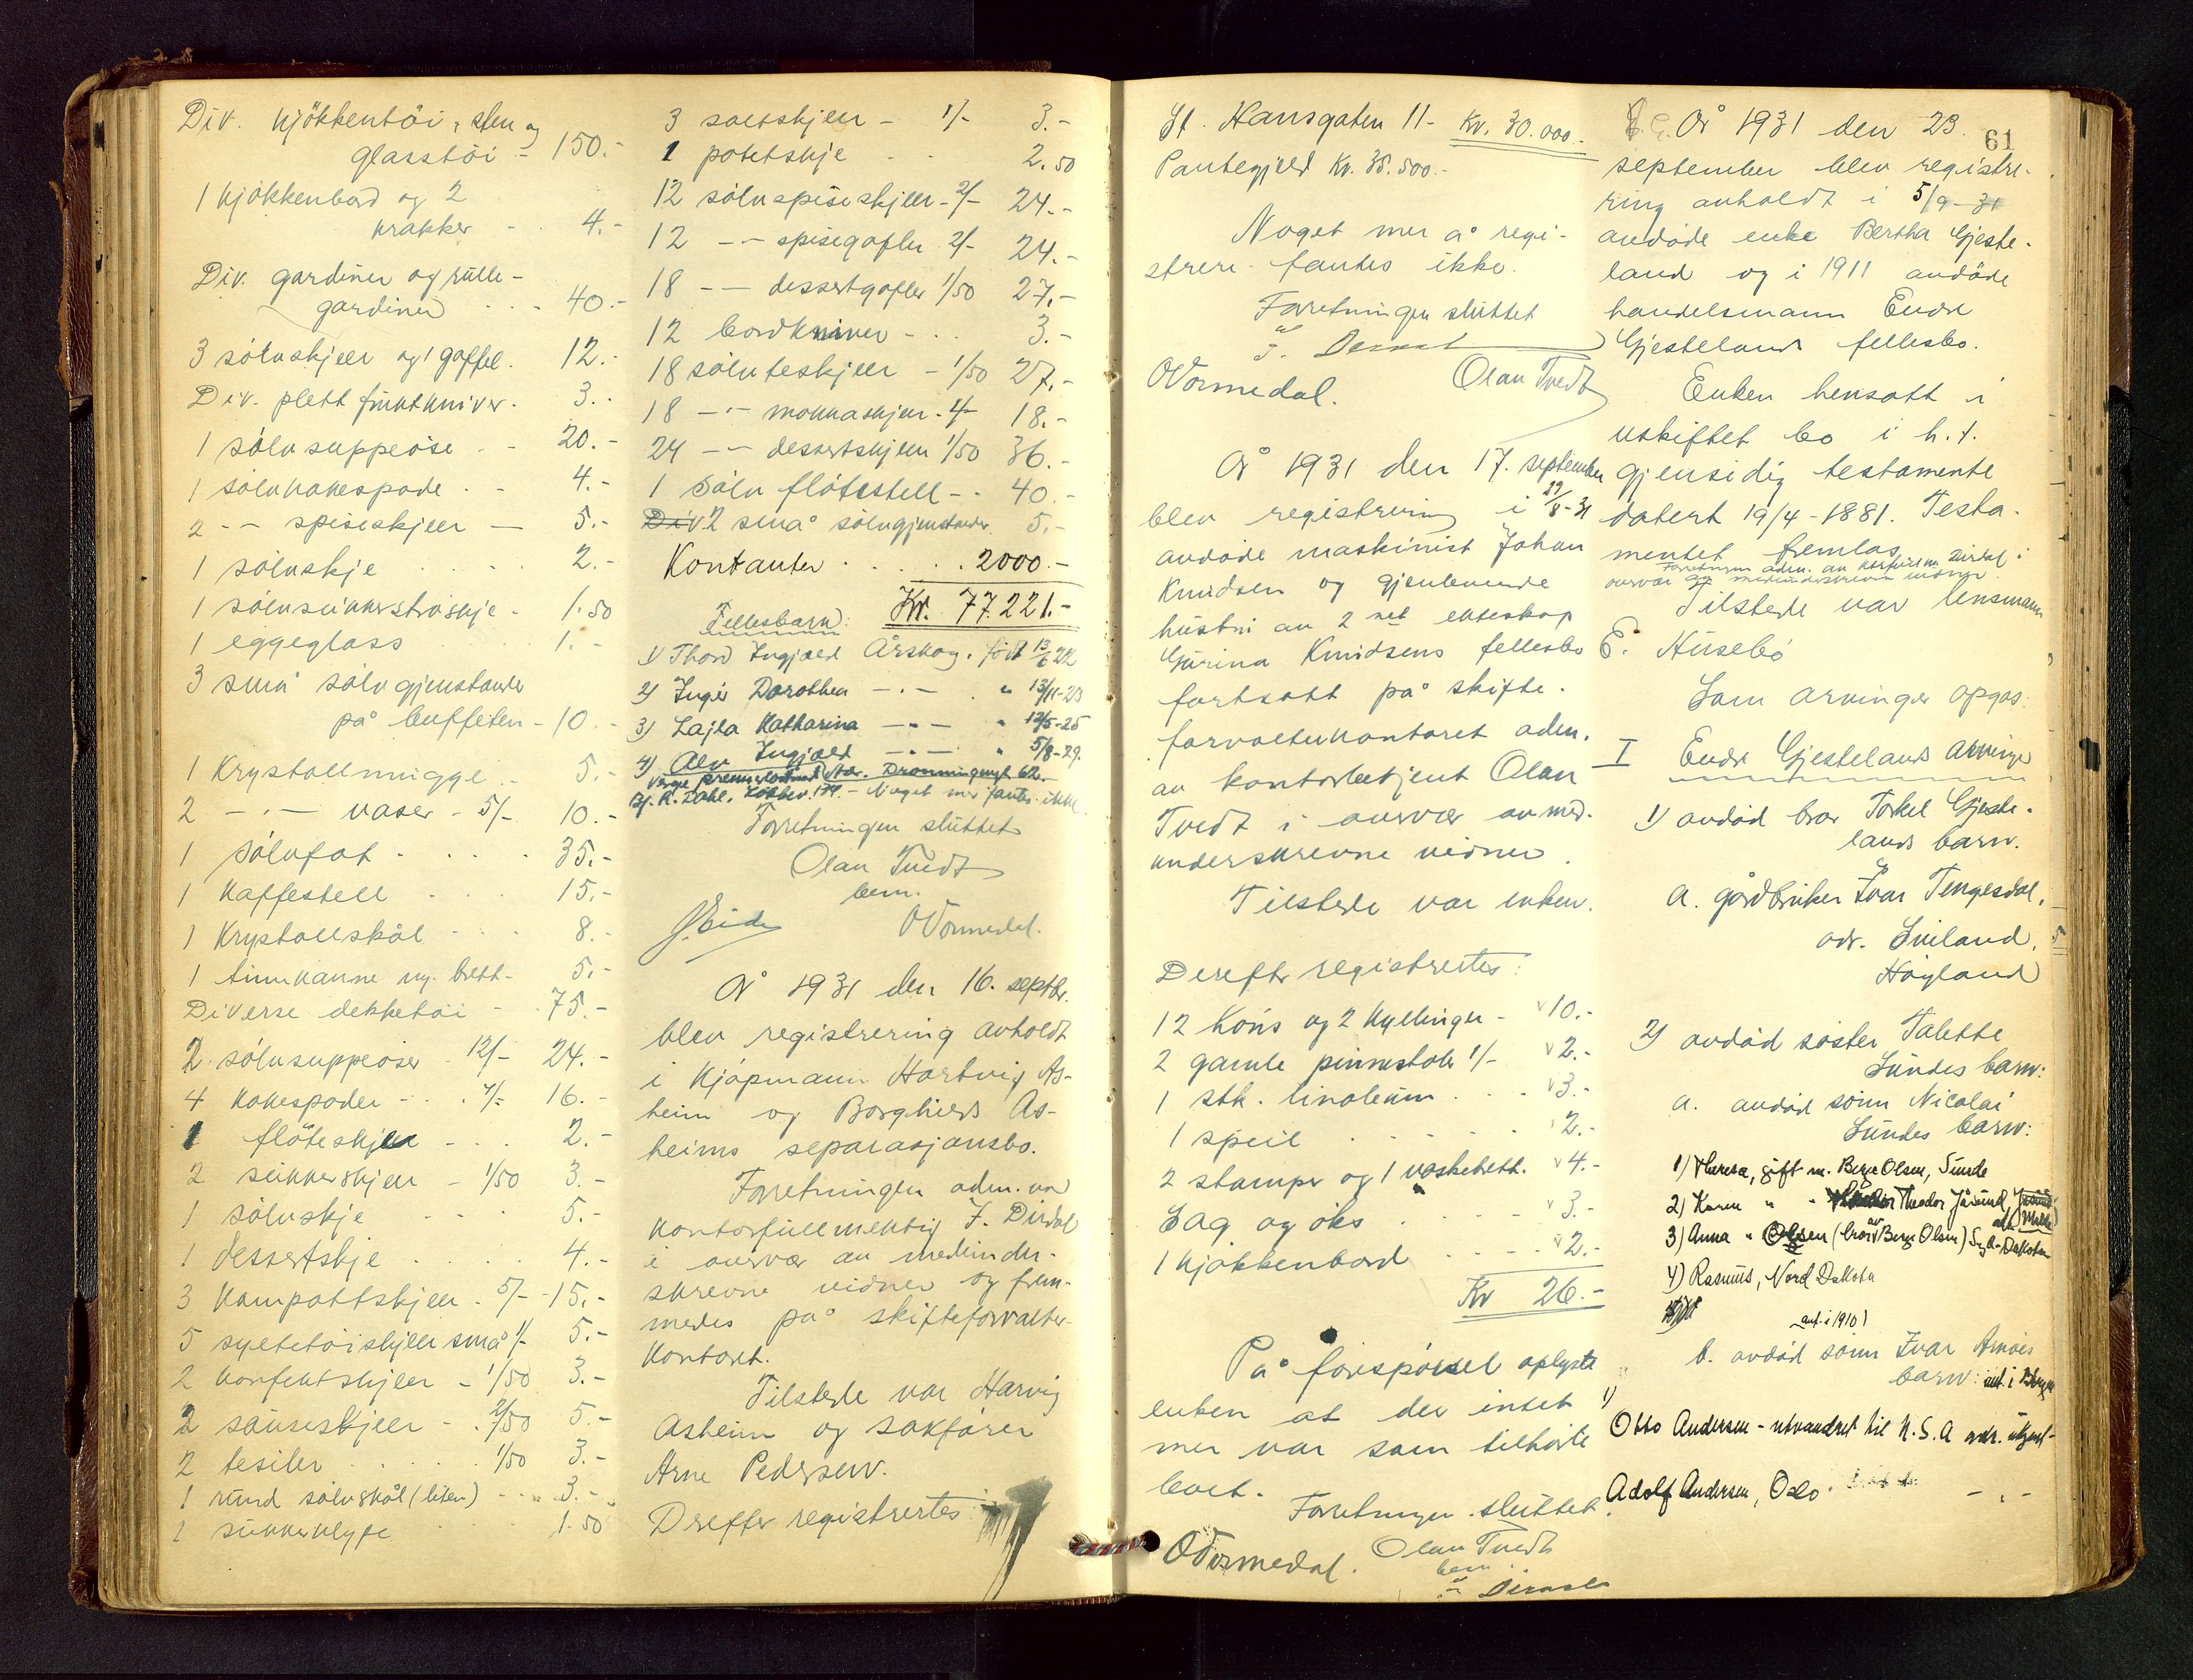 Div. kjökkentöi, sten og
glasstöi - 150.-
1 kjökkenbord og 2
krakker - . 4.-
Div. gardiner og rulle-
gardiner . . . 40.-
3 sölvskjeer og 1 gaffel. 12.-
Div. plett fruktkniver. 3.-
1 sölvsuppeöse - . 20.-
1 sölvkakespade . - 4.-
2 -"- spiseskjeer - 5.-
1 sölvskje . . . . 2.-
1 sölvsukkerströskje - 1.50
1 eggeglass . . . 1.-
3 små sölvgjenstander
på buffeten - 10.-
1 Krystallmugge - 5.-
2 -"- vaser - 5/- 10.-
1 sölvfat . . . . 35.-
1 Kaffestell . . . 15.-
1 Krystallskål . . . 8.-
1 tinnkanne m. brett - 5.-
Diverse dekketöi - . 75.-
2 sölvsuppeöser - 12/- 24.-
4 kakespader - . . 4/- 16.-
1 flöteskjee - . . 2.-
2 sukkerskjeer - 1/50 3.-
1 sölvskje . . . 5.-
1 dessertskje . . . . 4.-
3 kompottskjeer . 5/- 15.-
5 syltetöiskjeer små 1/- 5.-
2 konfektskjeer - 1/50 3.-
2 sauseskjeer - . 2/50 5.-
2 tesiler . . . . 1/50 3.-
1 rund sölvskål (liten) - . 3.-
1 sukkerklype . . . 1.50
3 saltskjeer - 1/- 3.-
1 potetskje . . 2.50
12 sölvspiseskjeer - 2/- 24.-
12 -"- spisegafler 2/- 24.-
18 -"- dessertgafler 1/50 27.-
12 bordkniver - . . 3.-
18 sölvteskjeer - 1/50 27.-
18 -"- mokkaskjeer - 1/- 18.-
24 -"- dessertskjeer 1/50 36.-
1 Sölv flötestell - . 40.-
Div 2 små sölvgjenstander 5.-
Kontanter . . . . . 2000.-
Kr. 77.221.-
Fellesbarn:
1) Thord Ingjald Årskog. född 13/6 22
2) Inger Dorothea -"- " 13/11-23
3) Lajla Katharina -"- " 12/5-25
4) Alv Ingjald -"- " 5/8-29.
Noget mer fantes ikke
Forretningen sluttet
Olav Tvedt
bem.
J. Eide O Vormedal.
År 1931 den 16. septbr.
blev registrering avholdt
i kjöpmann Hartvig As-
heim og Borghild As-
heims separasjonsbo.
Forretningen adm. av
kontorfullmektig F. Dirdal
i overvær av medunder-
skrevne vidner og frem-
medes på skifteforvalter-
kontoret.
Tilstede var Harvig
Asheim og sakförer
Arne Pedersen.
Derefter registrertes:
St. Hansgaten 11 - Kr. 30.000.-
Pantegjeld Kr. 38.500.-
Noget mer å regi-
strere fantes ikke.
Forretningen sluttet
O Vormedal. Olav Tvedt
År 1931 den 17. september
blev registrering i 29/8-31
avdöde maskinist Johan
Knudsen og gjenlevende
hustru av 2net ekteskap
Gurina Knudsens fellesbo
fortsatt på skifte-
forvalterkontoret adm.
av kontorbetjent Olav
Tvedt i overvær av med-
underskrevne vidner.
Tilstede var enken.
Derefter registrertes:
12 Höns og 2 kyllinger - 10.-
2 gamle pinnestoler 1/- 2.-
1 stk. linoleum . . . 3.-
1 speil . . . . . 2.-
2 stamper og 1 vaskebrett. 4.-
Sag og öks . . . . 3.-
1 kjökkenbord . . . . 2.-
Kr 26.-
På forespörsel oplyste
enken at der intet
mer var som tilhörte
boet.
Forretningen sluttet.
O Vormedal. Olav Tvedt
bem.
61
År 1931 den 23.
september blev registre-
ring avholdt i 5/9-31
avdöde enke Bertha Gjeste-
land og i 1911 avdöde
handelsmann Endre
Gjestelands fellesbo.
Enken hensatt i
uskiftet bo i h.t.
gjensidig testamente
datert 19/4-1881. Testa-
mentet fremlas.
Forretningen adm. av ktrfullm. Dirdal i
overvær av medunderskrevne vidner.
Tilstede var lensmann
E. Husebö
Som arvinger opgas:
I Endre Gjestelands arvinger
1) avdöd bror Torkel Gjeste-
lands barn.
a. gårdbruker Ivar Tengesdal,
adr. Sviland,
Höyland
2) avdöd söster Talette
Lundes barn:
a. avdöd sönn Nicolai
Lundes barn:
1) Theresa, gift m. Berge Olsen, Sunde
2) Karen " " Theodor Jåsund,
3) Anna " Olsen (bror av Berge Olsen) Syd-Dakota
4) Rasmus, Nord Dakota
b. avdöd sönn Ivar
barn:
1)
Otto Andersen - utvandret til U.S.A adr. ukjent-
Adolf Andersen, Oslo. - " -